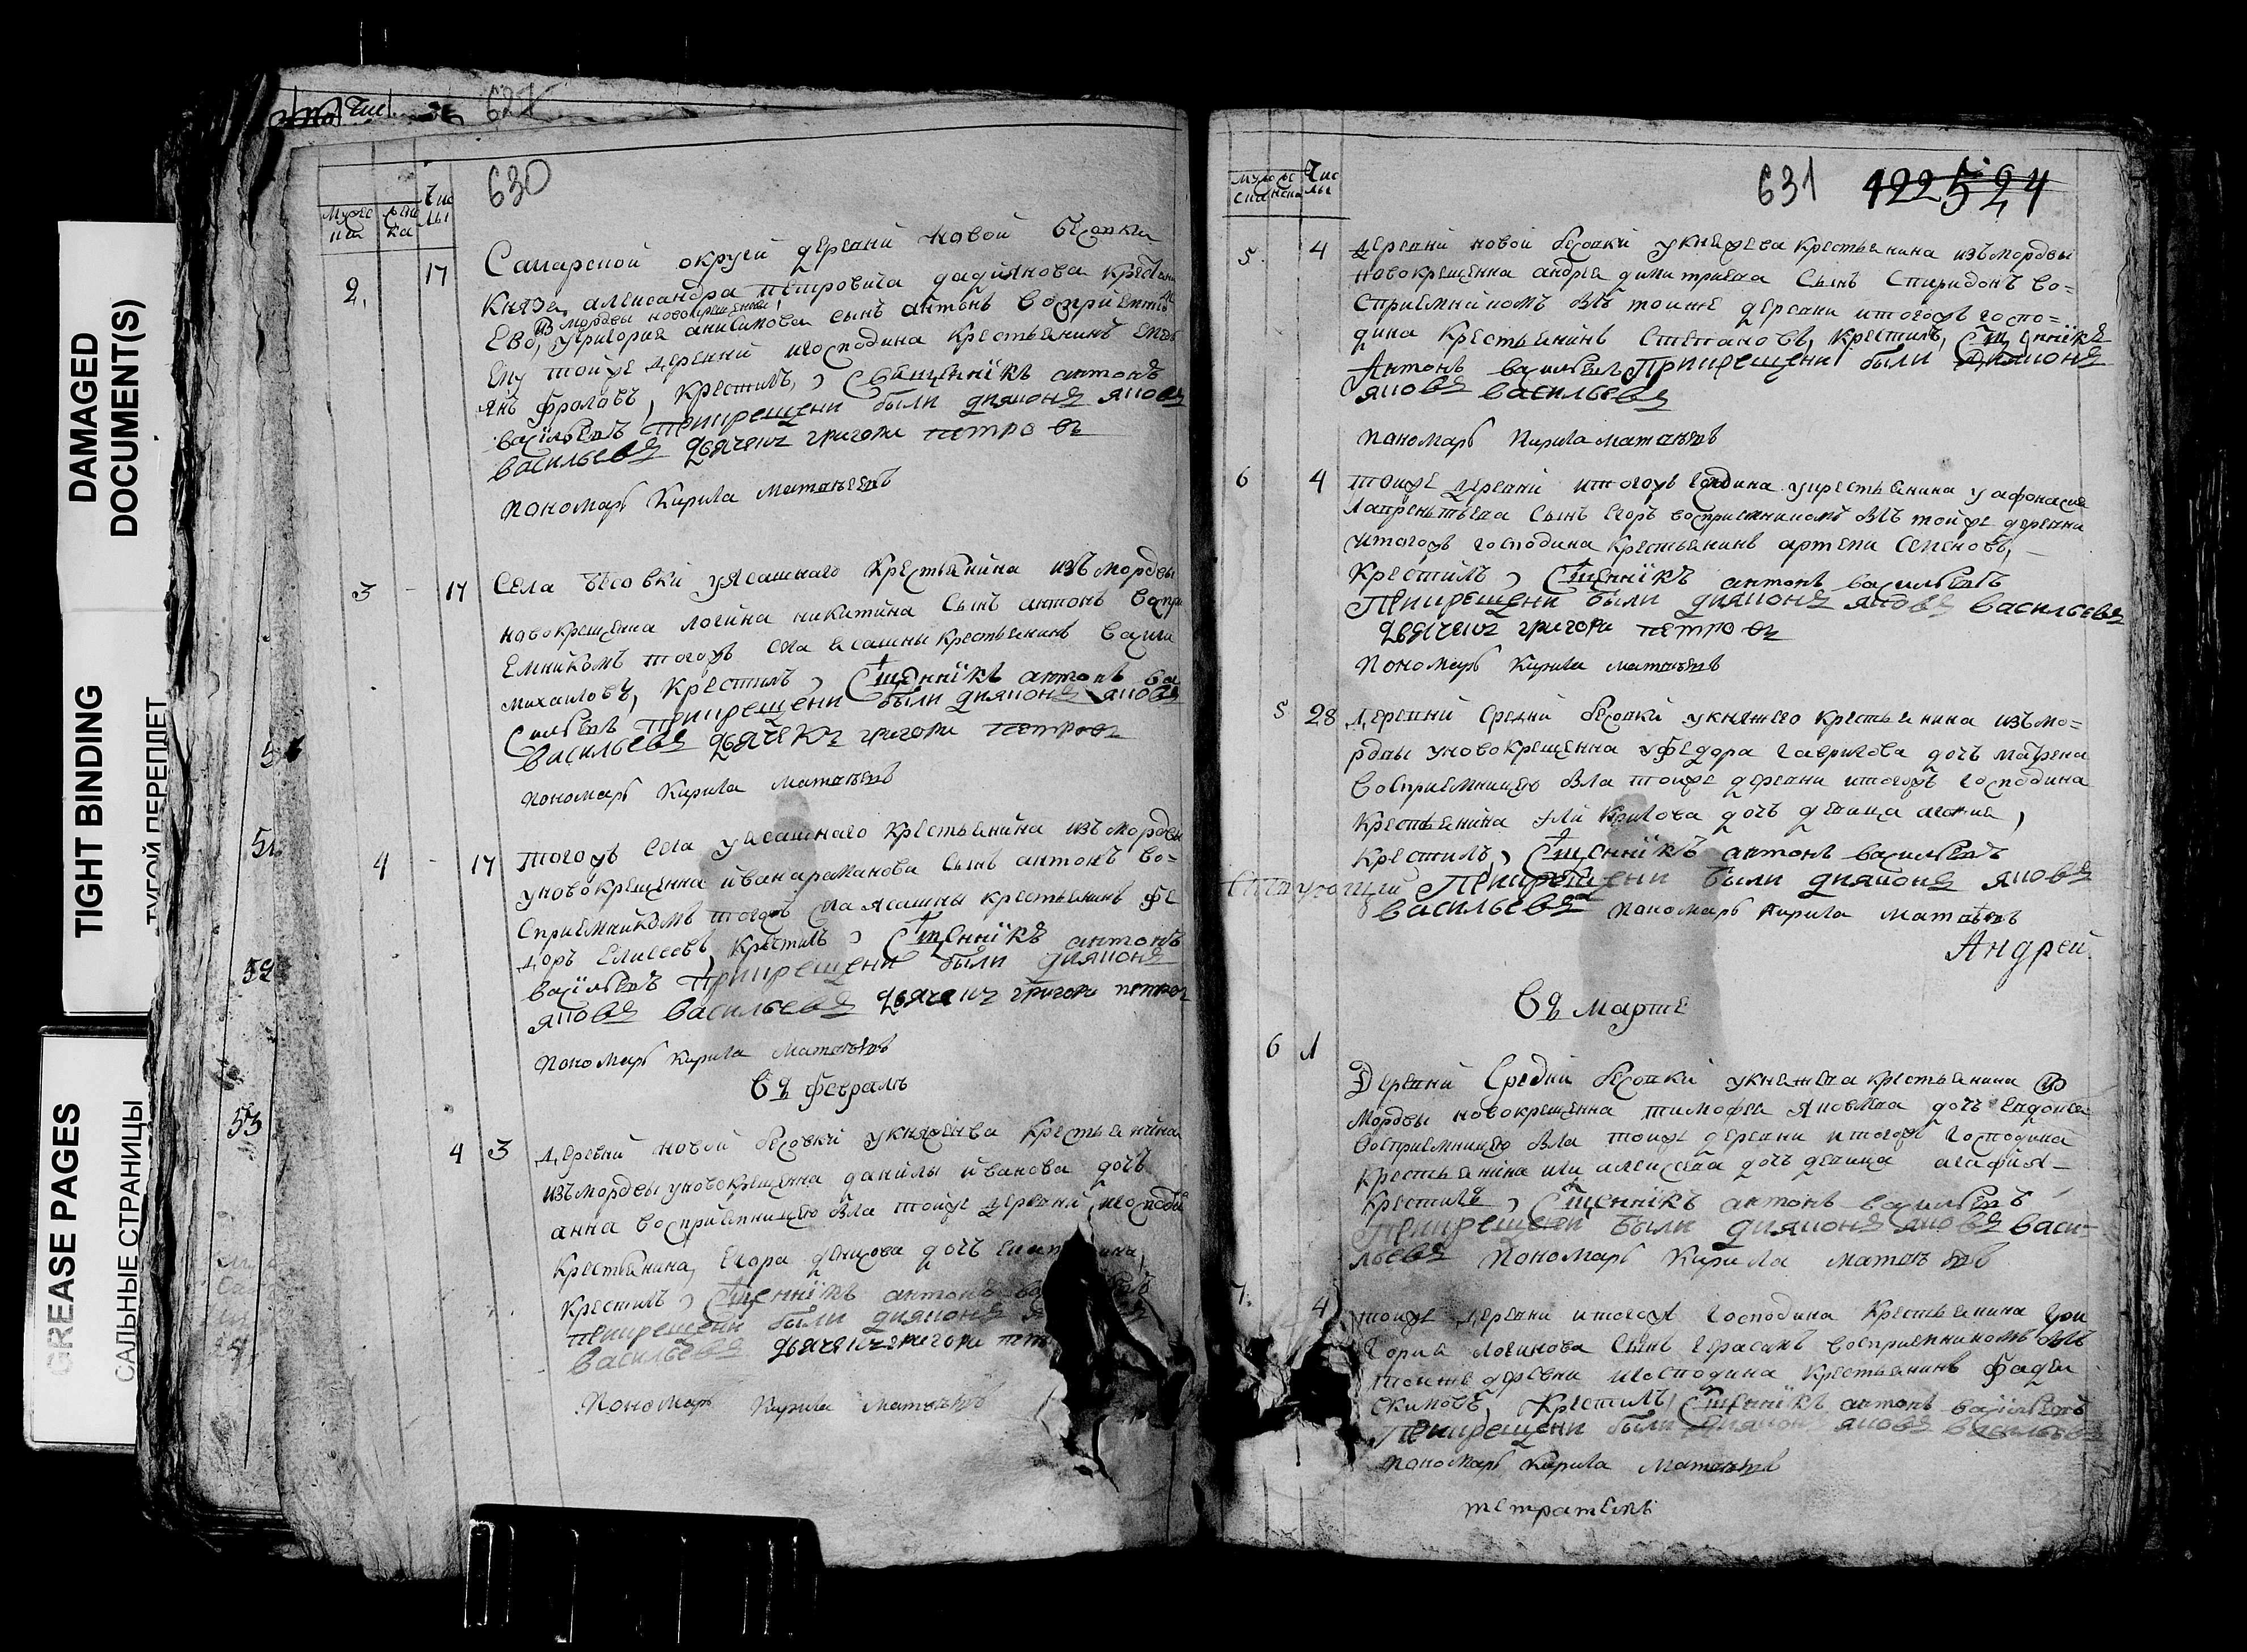 DAMAGED
DOCUMENT(S)
TIGHT BINDING
ТУГОЙ ПЕРЕПЛЕТ
GREASE PAGES
САЛЬНЫЕ СТРАНИЦЫ
627
53
630
Чис
лы
2. 17 Самарской округи деревни Новой Бесовки
Князя александра петровича дадиянова крестьяни
из мордвы новокрещенна
ево, угригория анисимова сынъ антонъ восприемъ
ему тойже деревни игосподина крестьянинъ емел
янъ фроловъ, крестилъ, Священникъ антонъ
васильевъ Прикрещени были диякона якова
васильева дьячекъ григори петровъ
пономарь Кирила матвеевъ
3 - 17 Села бесовки уясашнаго крестьянина изъ мордвы
новокрещенна логина никитина сынъ антонъ воспри
емникомъ тогожъ села ясашны крестьянинъ васили
михаиловъ, крестилъ, Сщенникъ антонъ ва
сильевъ Прикрещени были диякона якова
васильева дьячекъ григори петровъ
пономарь Кирила матвеевъ
4 - 17 тогожъ села уясашнаго крестьянина изъ мордвы
уновокрещенна ивана романова сынъ антонъ во=
сприемникомъ тогожъ села ясашны крестьянинъ фе
доръ елисеевъ, крестилъ, Сщенникъ антонъ
васильевъ Прикрещени были диякона
якова васильева дьячекъ григори петровъ
пономарь кирила матвеевъ
Въ февралѣ
4 3 деревни новой бесовки укняжева крестьянина
изъ мордвы уновокрещенна данилы иванова дочь
анна восприемницею была тойже деревни игосподи
крестьянина, егора денисова дочь
крестилъ, Сщенникъ антонъ
прикрещени были диякона
васильева дьячекъ григори
пономарь Кирила матвеевъ
631 122 524
Чис
лы
5. 4 деревни новой бесовки укняжева крестьянина изъ мордвы
новокрещенна андрея димитриева сынъ Спиридонъ во=
сприемникомъ былъ тоиже деревни итогожъ госпо=
дина крестьянинъ степановъ, крестилъ, Сщенникъ
Антонъ васильевъ Прикрещени были диякона
якова васильева
пономарь Кирила матвеевъ
6 4 тойже деревни итогожъ гсдина укрестьянина у афонасия
лаврентьева сынъ егоръ восприемникомъ былъ тойже деревни
итогожъ господина крестьянинъ артеми семеновъ,
крестилъ, Сщенникъ антонъ васильевъ
Прикрещени были диякона якова васильева
дьячекъ григори петровъ
пономарь Кирила матвеевъ
5 28 деревни средни бесовки укняжего крестьянина изъ мо=
рдвы уновокрещенна уфедора гаврилова дочь матрена
восприемницею была тойже деревни итогожъ господина
крестьянина
крестилъ, Сщенникъ антонъ васильевъ
Прикрещени были диякона якова
васильева пономарь Кирила матвеевъ
Андрей
Въ мартѣ
6 1
Деревни Средни бесовки укняжева крестьянина изъ
мордвы новокрещенна тимофея яковлева дочь евдокия
восприемницею была тойже деревни итогожъ господина
крестьянина или алексеева дочь девица агафия
крестилъ, Сщенникъ антонъ васильевъ
Прикрещени были диякона якова васи-
льева пономарь Кирила матвеевъ
7. 4 тойже деревни итогожъ господина крестьянина гри
гория логинова сынъ герасимъ восприемникомъ былъ
тоиже деревни игосподина крестьянинъ фадеи
крестилъ, Сщенникъ антонъ васильевъ
Прикрещени были диякона якова васильева
пономарь Кирила матвеевъ